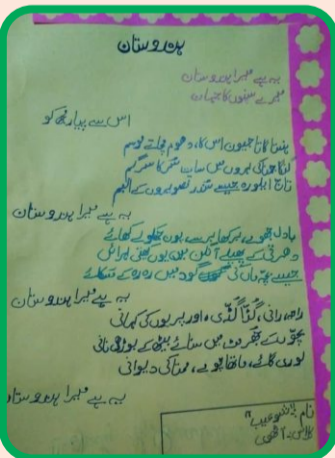 ہندوستان
یہ ہے میرا ہندوستان
میرے سپنوں کا جہان
اس سے پیار مجھ کو
ہنستا گاتا جیون اس کا، دھوم مچاتے موسم
گنگا جمنا کی لہروں میں سات سروں کا سرگم
تاج ایلورہ جیسے سندر تصویروں کے البم
یہ ہے میرا ہندوستان
بادل جھومے، برکھا برسے، پون جھکولے کھائے
دھرتی کے پھیلے آنگن میں یوں کھیتی لہرائے
جیسے بچہ ماں کی گود میں رہ رہ کے مسکائے
یہ ہے میرا ہندوستان
راجہ رانی، گڈا گڈی، اور پریوں کی کہانی
بچوں کے جھرمٹ میں سنائے بیٹھ کے بوڑھی نانی
لوری گائے، ماتھا چومے، ممتا کی دیوانی
یہ ہے میرا ہندوستان
نام:
کلاس: آٹھویں